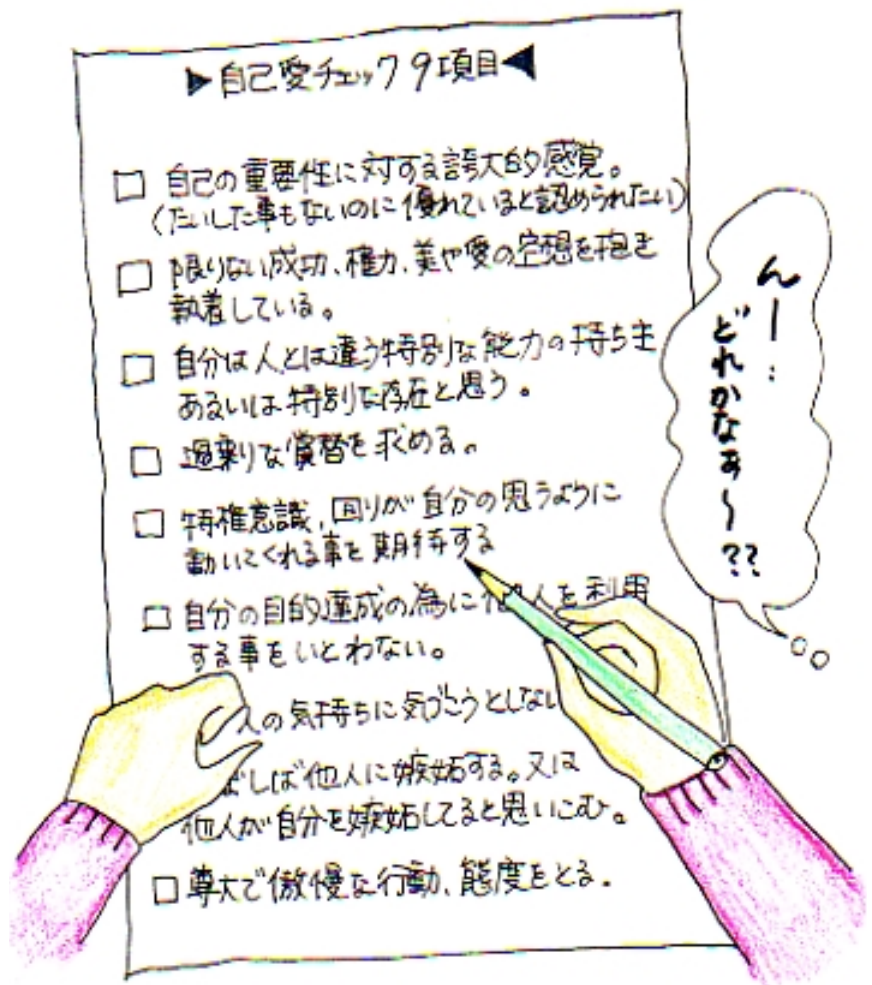 ▶自己愛チェック9項目◀
□ 自己の重要性に対する誇大的感覚。
(たいした事もないのに優れていると認められたい)
□ 限りない成功、権力、美や愛の空想を抱き
執着している。
□ 自分は人とは違う特別な能力の持ち主
あるいは特別な存在と思う。
□ 過剰な賞賛を求める。
□ 特権意識、回りが自分の思うように
動いてくれる事を期待する
□ 自分の目的達成の為に他人を利用
する事をいとわない。
人の気持ちに気づこうとしない
ばしば他人に嫉妬する。又は
他人が自分を嫉妬してると思いこむ。
□ 尊大で傲慢な行動、態度をとる。
んー…
どれかなぁ〜??